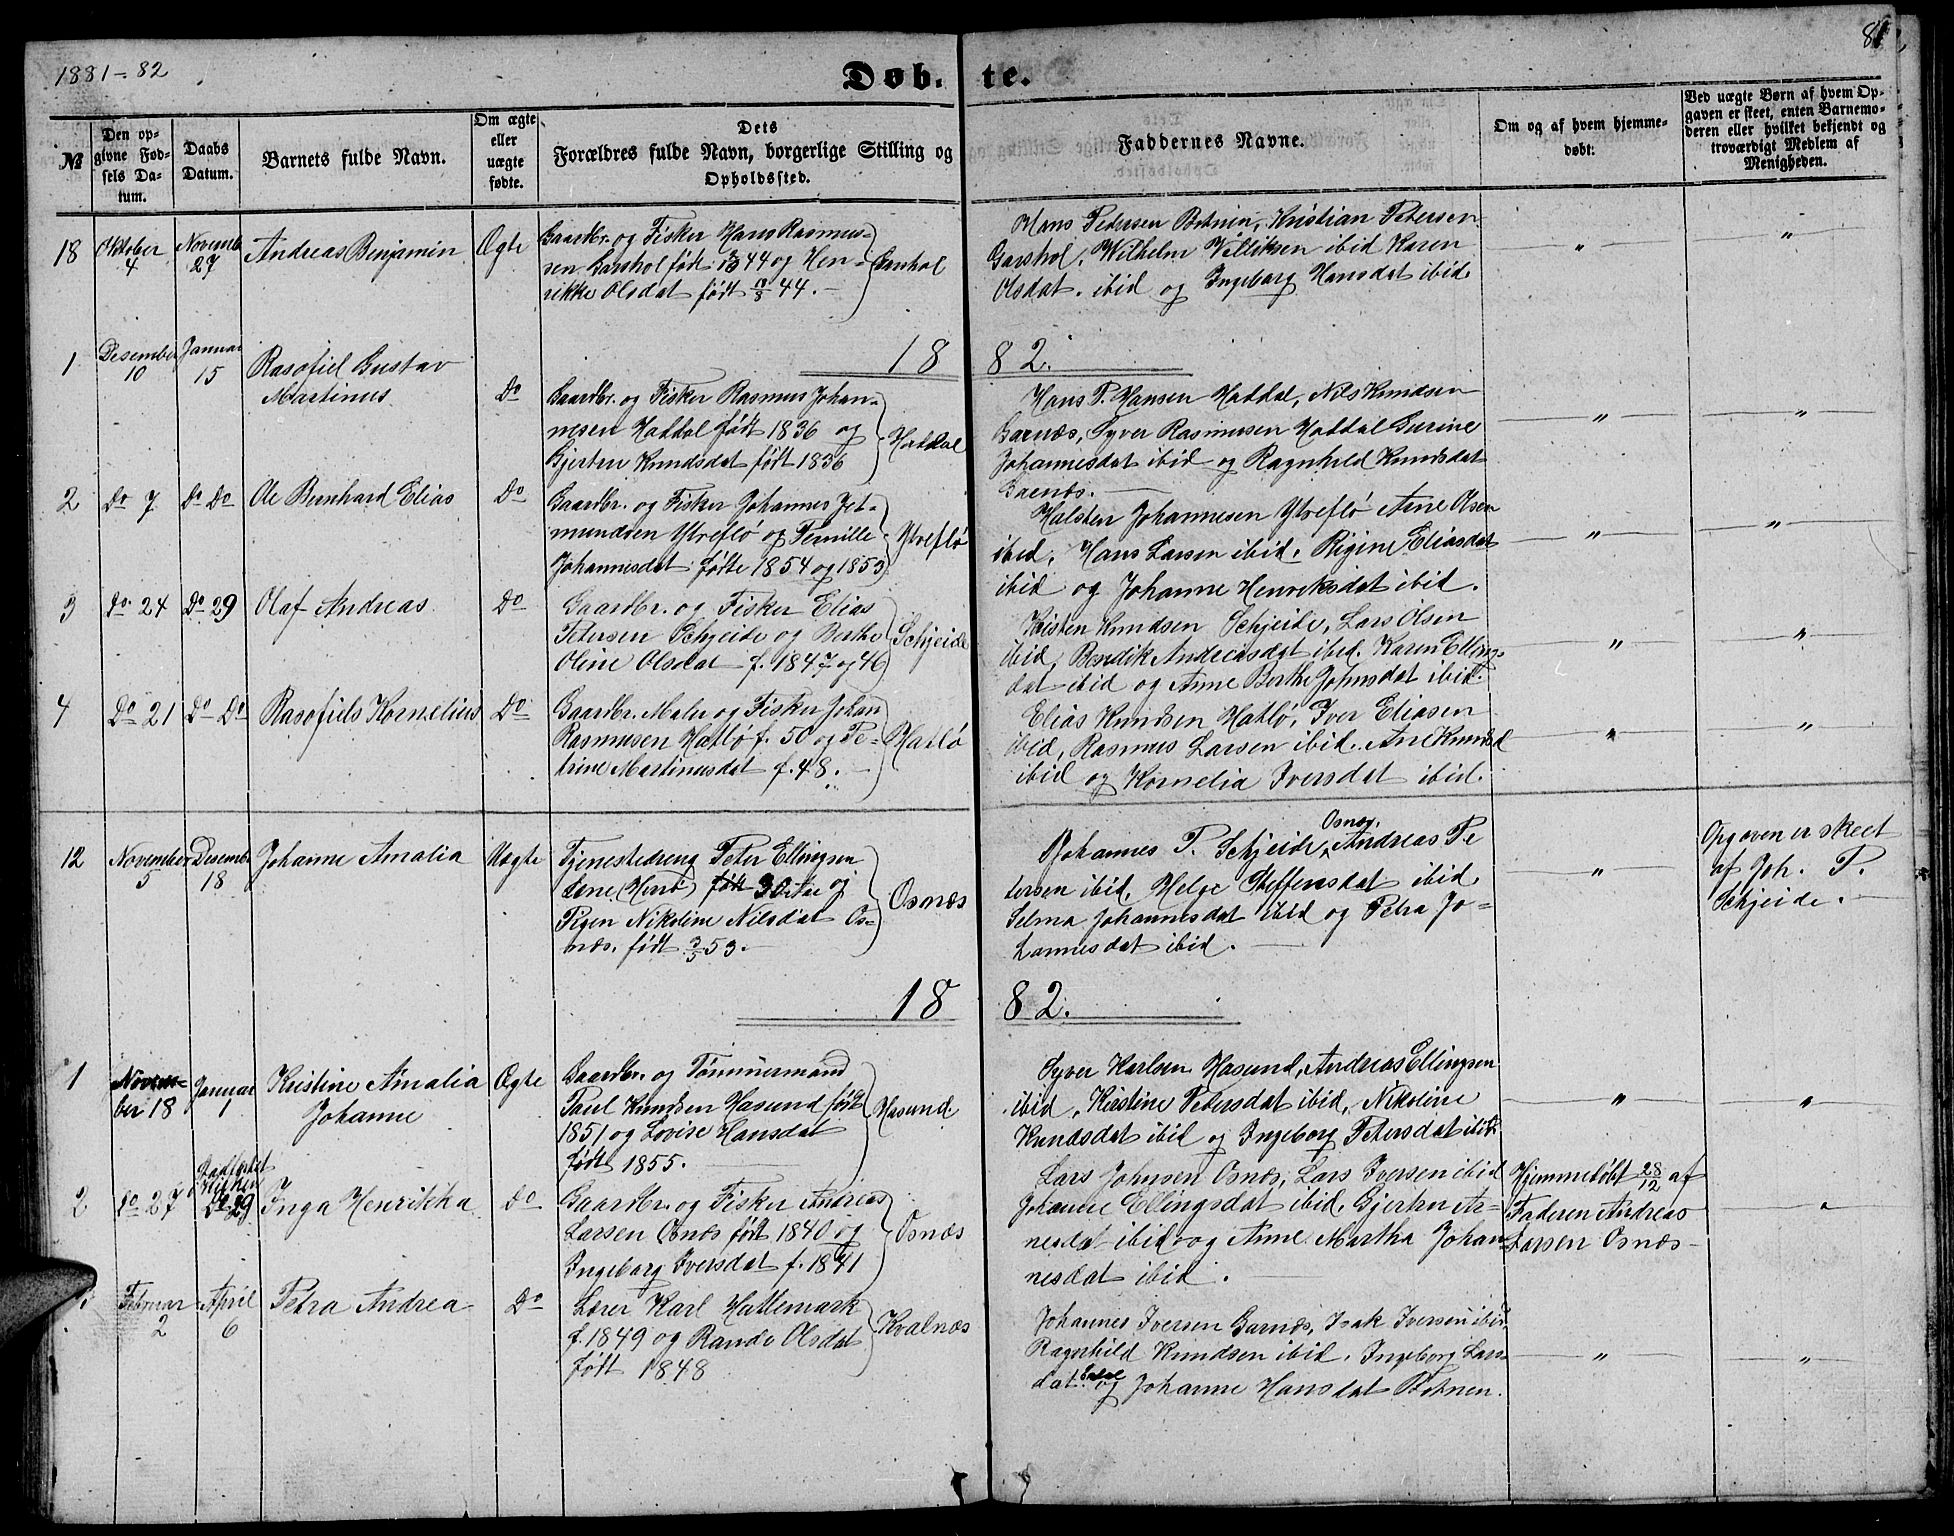 1881-82
Døb.
te.
81
№
Den op-
givne Fød-
sels Da-
tum.
Daabs
Datum.
Barnets fulde Navn.
Om ægte
eller
uægte
fødte.
Dets
Forældres fulde Navn, borgerlige Stilling og
Opholdssted.
Faddernes Navne.
Om og af hvem hjemme-
døbt:
Ved uægte Børn af hvem Op-
gaven er skeet, enten Barnemo-
deren eller hvilket bekjendt og
troværdigt Medlem af
Menigheden.
18
Oktober
4
Novemb
27
Andreas Benjamin
Ægte
Gaardbr. og Fisker Hans Rasmus-
sen Garshol født 44 og Hen-
rikke Olsdat født 44.
Garshol
Hans Pedersen Botnen, Kristian Petersen
Garshol, Wilhelm Villiksen ibid Karen
Olsdat. ibid og Ingeborg Hansdat ibid.
"
"
1882.
1
Desember
10
Januar
15
Rasofiel Gustav
Martinus.
Do
Gaardbr. og Fisker Rasmus Johan-
nesen Haddal født 1836 og
Gjertru Knudsdat født 1836
Haddal
Hans P. Hansen Haddal, Nils Knudsen
Garnæs, Syver Rasmusen Haddal Gurine
Johannesdat ibid og Ragnhild Knudsdat
Garnæs.
"
"
2
Do 7
Do Do
Ole Bernhard Elias
Do
Gaardbr. og Fisker Johannes Jet-
mundsen Ytreflø og Pernille
Johannesdat fødte 1854 og 1853
Ytreflø
Halsten Johannesen Ytreflø Arne Olsen
ibid. Hans Larsen ibid. Rigine Eliasdat
ibid og Johanne Henriksdat ibid.
"
"
3
Do 24
Do 29
Olaf Andreas
Do
Gaardbr. og Fisker Elias
Petersen Schjeide og Berthe
Oline Olsdat f. 1847 og 46
Schjeide
Kristen Knudsen Schjeide, Lars Olsen
ibid, Bendik Andreasdat ibid. Karen Elling-
dat ibid og Anne Berthe Johnsdat ibid.
"
"
4
Do 21
Do Do
Rasofiels Kornelius
Do
Gaardbr. Maler og Fisker Johan
Rasmusen Hatlø f. 50 og Pe-
trine Martinusdat f. 48.
Hatlø
Elias Knudsen Hatlø, Iver Eliasen
ibid, Rasmus Larsen ibid. Ane Knudsd
ibid og Kornelia Iversdat ibid.
"
"
12
November
5
Desemb
18
Johanne Amalia
Uægte
Tjenestedreng Peter Ellingsen
Lene (Herø) født 30 Aar og
Pigen Nikoline Nilsdat Os-
næs. født 3/5 53.
Osnæs
Osnæs,
Johannes P. Schjeide Andreas Pe
tersen ibid, Helge Steffensdat ibid.
Selma Johannesdat ibid og Petra Jo-
hannesdat ibid.
"
Opgaven er skeet
af Joh. P.
Schjeide.
1882.
1
Novem-
ber 18
Januar
1
Kristine Amalia
Johanne
Ægte
Gaardbr. og Tømmermand
Paul Knudsen Hasund født
1851 og Lovise Hansdat
født 1855.
Hasund.
Syver Karlsen Hasund, Andreas Ellingsen
ibid, Kirstine Petersdat ibid, Nikoline
Knudsdat ibid og Ingeborg Petersdat ibid.
"
"
2
Do 27
Do 29
Inga Henrikka
Do
Gaardbr. og Fisker Andreas
Larsen Osnæs født 1840 og
Ingeborg Iversdat f. 1841
Osnæs
Lars Johnsen Osnæs, Lars Iversen ibid
Johanne Ellingsdat ibid. Gjertru Ar-
nesdat ibid og Anne Martha Johan-
nesdat ibid.
Hjemmedøbt 28/12 af
Faderen Andreas
Larsen Osnæs
"
Februar
2
April
6
Petra Andrea
Do
Lærer Karl Hattemark
f. 1849 og Rande Olsdat
født 1848
Kvalnæs
Johannes Iversen Garnæs, Isak Iversen ibid
Ragnhild Knudsen ibid. Ingeborg Lars-
dat og Johanne Hansdat Botnen.
"
"